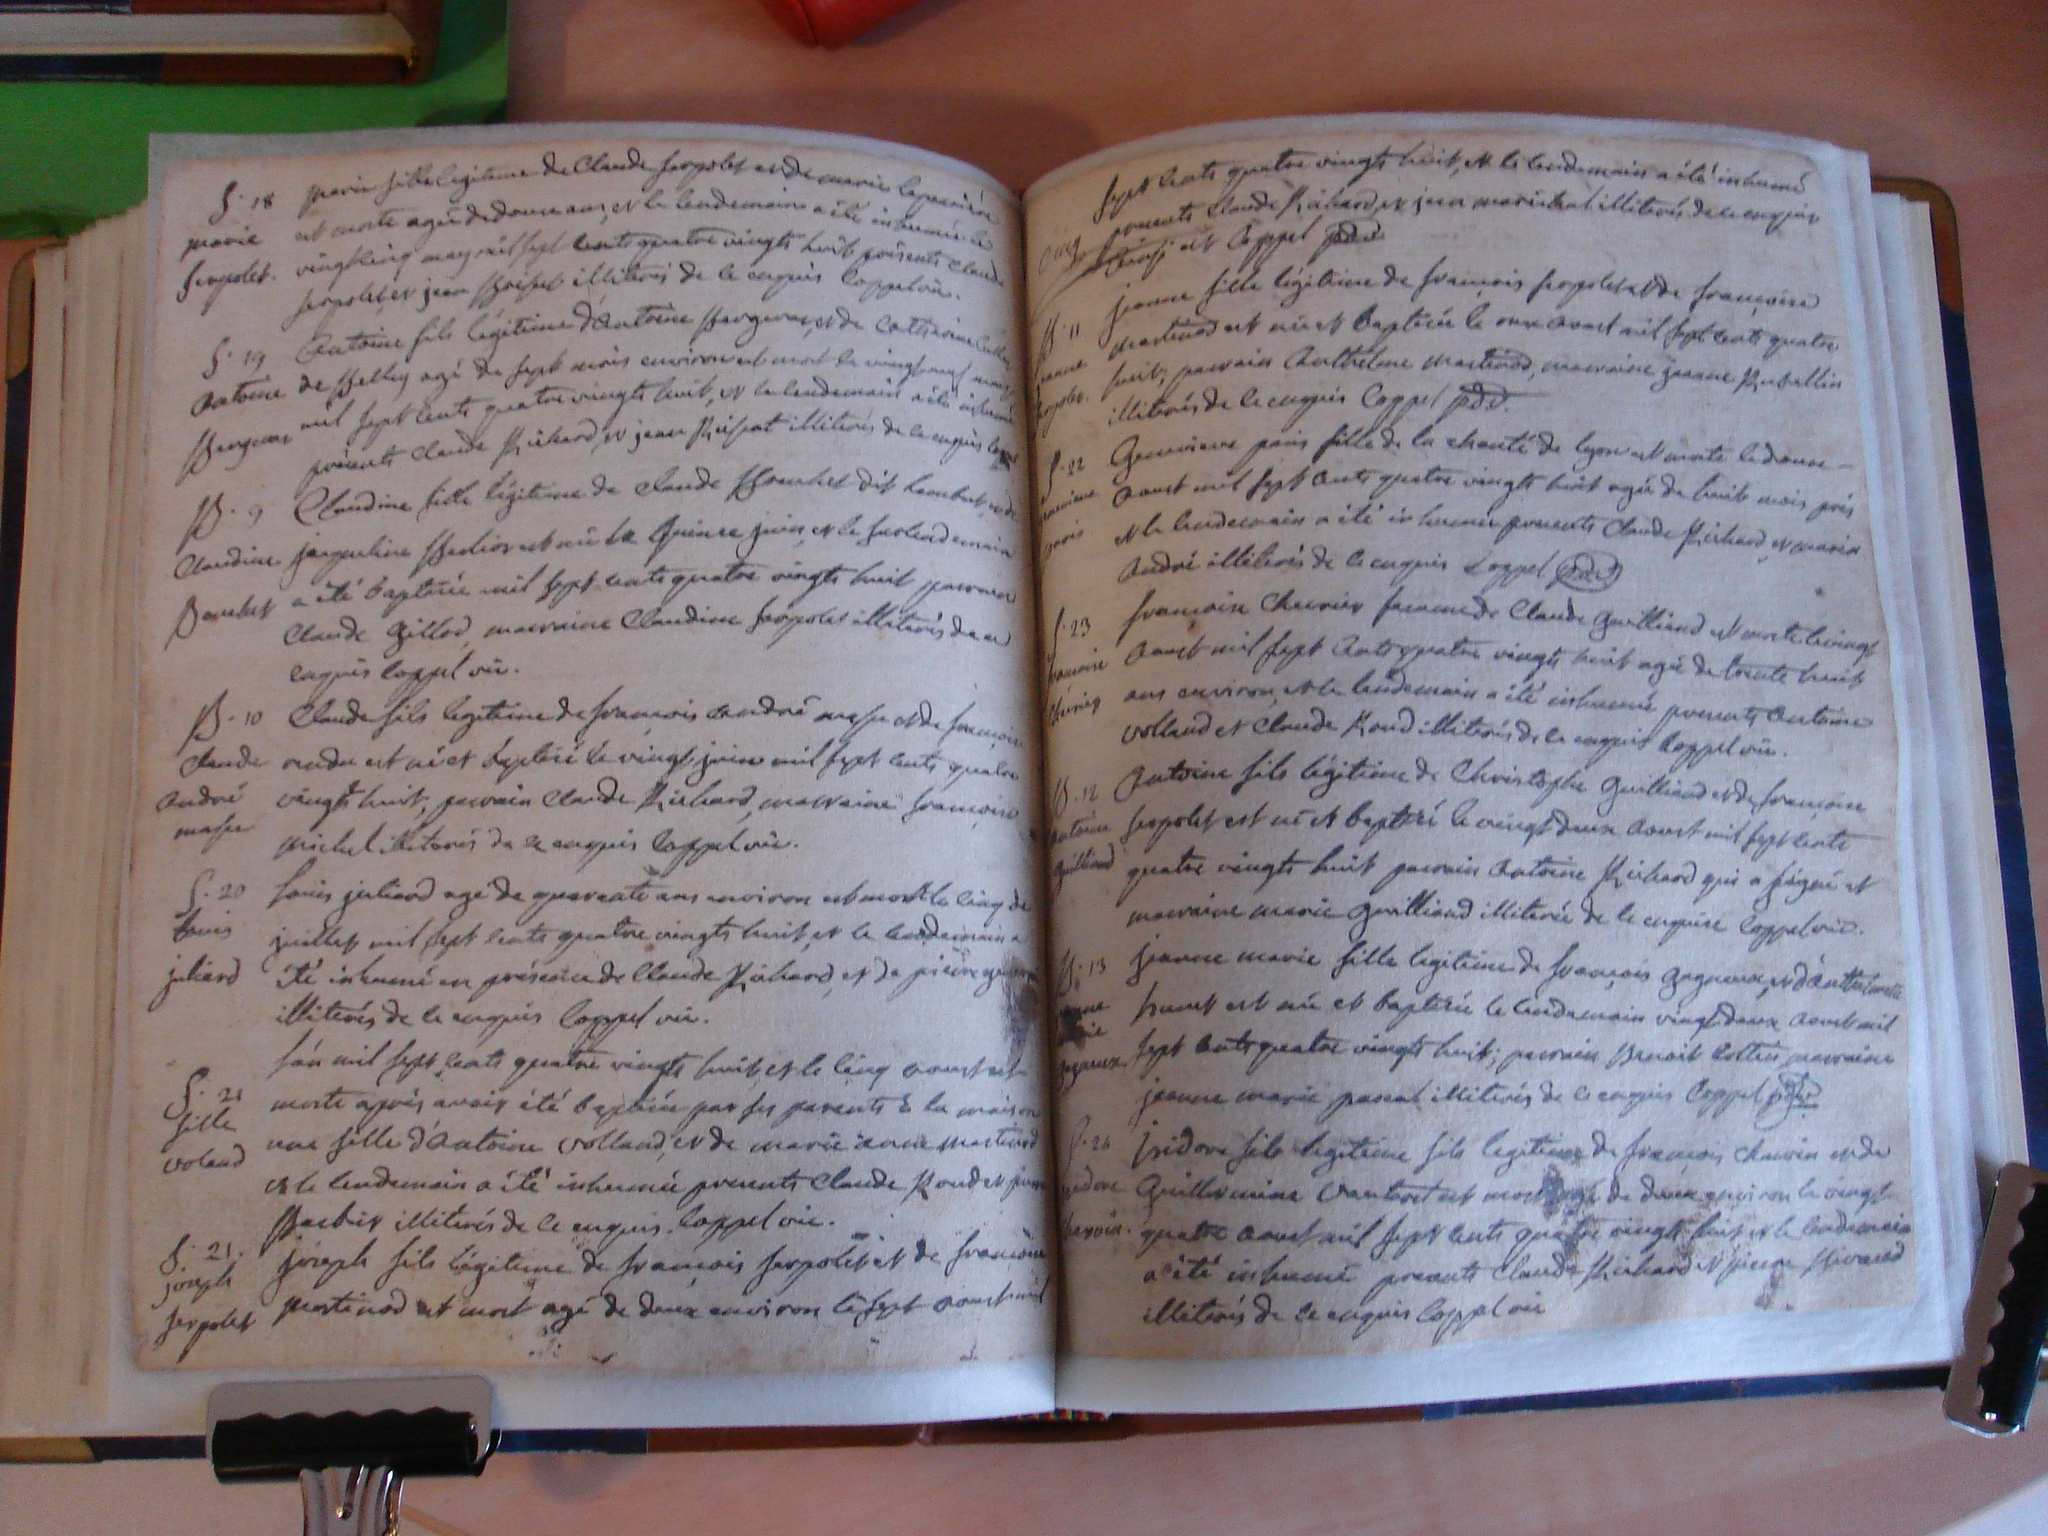 S. 18
marie
serpolet.
marie fille legitime de Claude serpolet et de marie
est morte agée de douze ans, et le lendemain a été inhumée le
vingt cinq may mil sept cents quatre vingts huit présents Claude
serpolet et jean illiterés de ce enquis Coppel vic.
S. 19
antoine
Antoine fils légitime d'Antoine et de Catherine
de Belley agé de sept mois environ est mort le vingt neuf may
mil sept cents quatre vingts huit, et le lendemain a été inhumé
présents Claude Richard, et jean illiterés de ce enquis Coppel
B. 9
Claudine
Bouchet
Claudine fille légitime de Claude Bouchet dit et de
jacqueline est née le Quinze juin, et le surlendemain
a été baptisée mil sept cents quatre vingts huit parrain
Claude Gillod, marraine Claudine serpolet illiterés de ce
enquis Coppel vic.
B. 10
Claude
andré
masse
Claude fils legitime de françois andré masse et de françoise
est né et baptisé le vingt juin mil sept cents quatre
vingts huit, parrain Claude Richard, marraine françoise
michel illiterés de ce enquis Coppel vic.
S. 20
Louis
juliard
Louis juliard agé de quarante ans environ est mort le cinq de
juillet mil sept cents quatre vingts huit, et le lendemain a
été inhumé en présence de Claude Richard, et de pierre
illiterés de ce enquis Coppel vic.
S. 21
fille
voland
L'an mil sept cents quatre vingts huit, et le cinq aoust est
morte après avoir été baptisée par ses parents à la maison
une fille d'Antoine Volland, et de marie anne martinod
et le lendemain a été inhumée presents Claude Roud et
Barbier illiterés de ce enquis. Coppel vic.
S. 21.
joseph
serpolet
joseph fils légitime de françois serpolet et de françoise
martinod est mort agé de deux environ le sept aoust mil
sept cents quatre vingts huit, et le lendemain a été inhumé
presents Claude Richard, et jean illiterés de ce enquis
ainsi est Coppel
B. 11
jeanne
serpolet.
jeanne fille légitime de françois serpolet et de françoise
martinod est née et baptisée le onze aoust mil sept cents quatre
huit; parrain Anthelme martinod, marraine jeanne Rubellin
illiterés de ce enquis Coppel
S. 22
Genevieve paris fille de la charité de lyon est morte le douze
aoust mil sept cents quatre vingts huit agée de huit mois près
et le lendemain a été inhumée presents Claude Richard et marin
André illiterés de ce enquis Coppel
S. 23
françoise
Chevrier
françoise Chevrier femme de Claude Guilliand est morte le vingt
aoust mil sept cents quatre vingts huit agée de trente huit
ans environ, et le lendemain a été inhumée presents Antoine
Volland et Claude Roud illiterés de ce enquis Coppel vic.
B. 12
antoine
Guilliand
Antoine fils légitime de Christophe Guilliand et de françoise
serpolet est né et baptisé le vingt deux aoust mil sept cents
quatre vingts huit parrain Antoine Richard qui a signé et
marraine marie Guilliand illiterée de ce enquise Coppel vic.
B. 13
jeanne marie fille legitime de françois Gagneux, et d'Anthelmette
est née et baptisée le lendemain vingt deux aoust mil
sept cents quatre vingts huit; parrain Benoit Cottin, marraine
jeanne marie pascal illiterés de ce enquis Coppel
S. 24
Isidore fils legitime fils legitime de françois Chavoin et de
Guillermine est mort de deux environ le vingt
quatre aoust mil sept cents quatre vingt huit et le lendemain
a été inhumé presents Claude Richard et pierre
illiterés de ce enquis Coppel vic